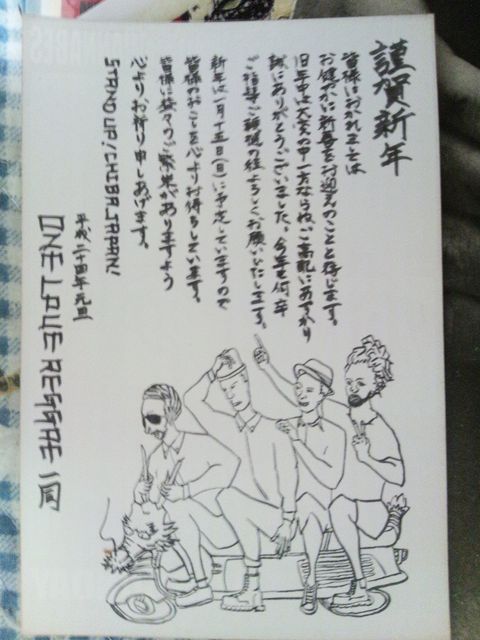 謹賀新年
皆様におかれましては
お健やかに新春をお迎えのことと存じます。
旧年中は大変の中一方ならぬご高配にあずかり
誠にありがとうございました。今年も何卒
ご指導ご鞭撻の程よろしくお願いいたします。
新年は一月十五日(日)に予定していますので
皆様のおこしを心よりお待ちしています。
皆様に益々のご繁栄がありますよう
心よりお祈り申しあげます。
STAND UP! CHIBA, JAPAN!
平成二十四年元旦
ONE LOVE REGGAE 一同